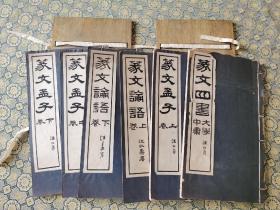 篆文四書
大學
中庸
篆文孟子
卷上
篆文論語
卷上
篆文論語
卷下
篆文孟子
卷中
篆文孟子
卷下